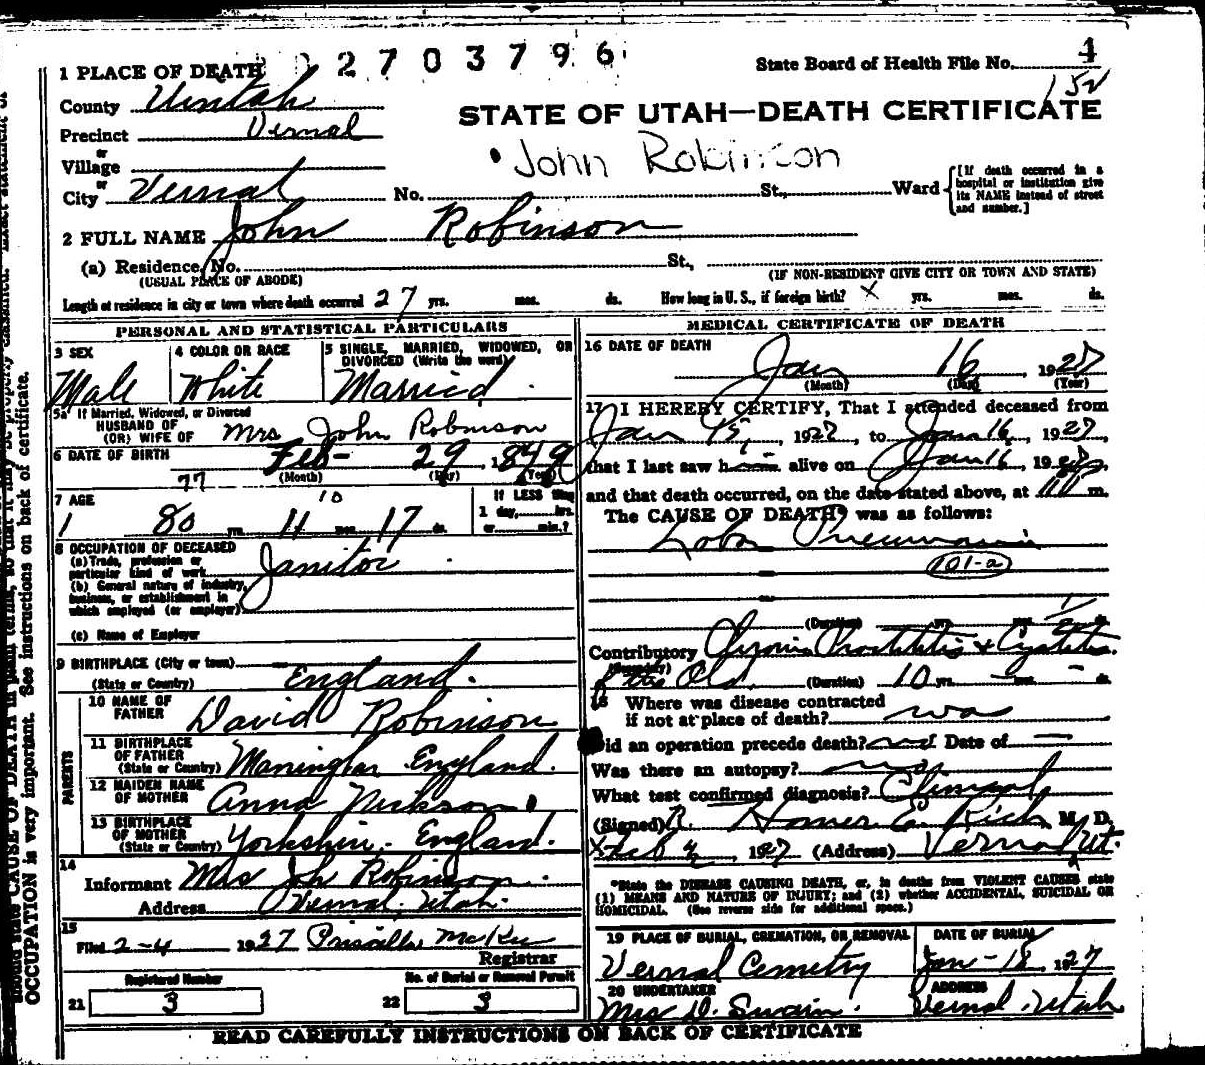 2703796
State Board of Health File No. 4
152
1 PLACE OF DEATH
County Uintah
STATE OF UTAH—DEATH CERTIFICATE
Precinct Vernal
or
Village
John Robinson
or
City Vernal No. St., Ward
[If death occurred in a hospital or institution give its NAME instead of street and number.]
2 FULL NAME John Robinson
(a) Residence, No. St.,
(USUAL PLACE OF ABODE) (IF NON-RESIDENT GIVE CITY OR TOWN AND STATE)
Length of residence in city or town where death occurred 27 yrs. mos. ds. How long in U. S., if foreign birth? X yrs. mos. ds.
PERSONAL AND STATISTICAL PARTICULARS
3 SEX
Male
4 COLOR OR RACE
White
5 SINGLE, MARRIED, WIDOWED, OR
DIVORCED (Write the word)
Married
5a If Married, Widowed, or Divorced
HUSBAND OF
(OR) WIFE OF Mrs John Robinson
6 DATE OF BIRTH Feb- 29, 1849
(Month) (Day) (Year)
77 10
7 AGE
1 80 yrs. 11 mos. 17 ds.
If LESS than
1 day, hrs.
or min.?
8 OCCUPATION OF DECEASED
(a) Trade, profession or
particular kind of work Janitor
(b) General nature of industry,
business, or establishment in
which employed (or employer)
(c) Name of Employer
9 BIRTHPLACE (City or town)
(State or Country) England.
PARENTS
10 NAME OF
FATHER David Robinson
11 BIRTHPLACE
OF FATHER
(State or Country) Maningham England.
12 MAIDEN NAME
OF MOTHER Anna
13 BIRTHPLACE
OF MOTHER
(State or Country) Yorkshire. England.
14
Informant Mrs Joh Robinson
Address Vernal, Utah.
15
Filed 2-4 1927 Priscilla McKee
Registrar
Registered Number
21 3
No. of Burial or Removal Permit
22 3
MEDICAL CERTIFICATE OF DEATH
16 DATE OF DEATH
Jan 16 1927
(Month) (Day) (Year)
17 I HEREBY CERTIFY, That I attended deceased from
Jan 15, 1927, to Jan 16, 1927,
that I last saw him alive on Jan 16, 1927,
and that death occurred, on the date stated above, at m.
The CAUSE OF DEATH* was as follows:
Lobar Pneumonia
101-a
(Duration) yrs. mos. ds.
Contributory Chronic Prostatitis & Cystitis.
(Secondary)
Old (Duration) 10 yrs. — mos. — ds.
18 Where was disease contracted
if not at place of death?
Did an operation precede death? Date of —
Was there an autopsy? no.
What test confirmed diagnosis? Clinical
(Signed) R. Homer E. Rich M. D.
X Feb 2, 1927 (Address) Vernal Ut.
*State the DISEASE CAUSING DEATH, or, in deaths from VIOLENT CAUSES state
(1) MEANS AND NATURE OF INJURY; and (2) whether ACCIDENTAL, SUICIDAL OR
HOMICIDAL. (See reverse side for additional space.)
19 PLACE OF BURIAL, CREMATION, OR REMOVAL
Vernal Cemetry
DATE OF BURIAL
Jan-18, 1927
20 UNDERTAKER
Mrs D. Swain.
ADDRESS
Vernal, Utah
READ CAREFULLY INSTRUCTIONS ON BACK OF CERTIFICATE
OCCUPATION is very important. See instructions on back of certificate.